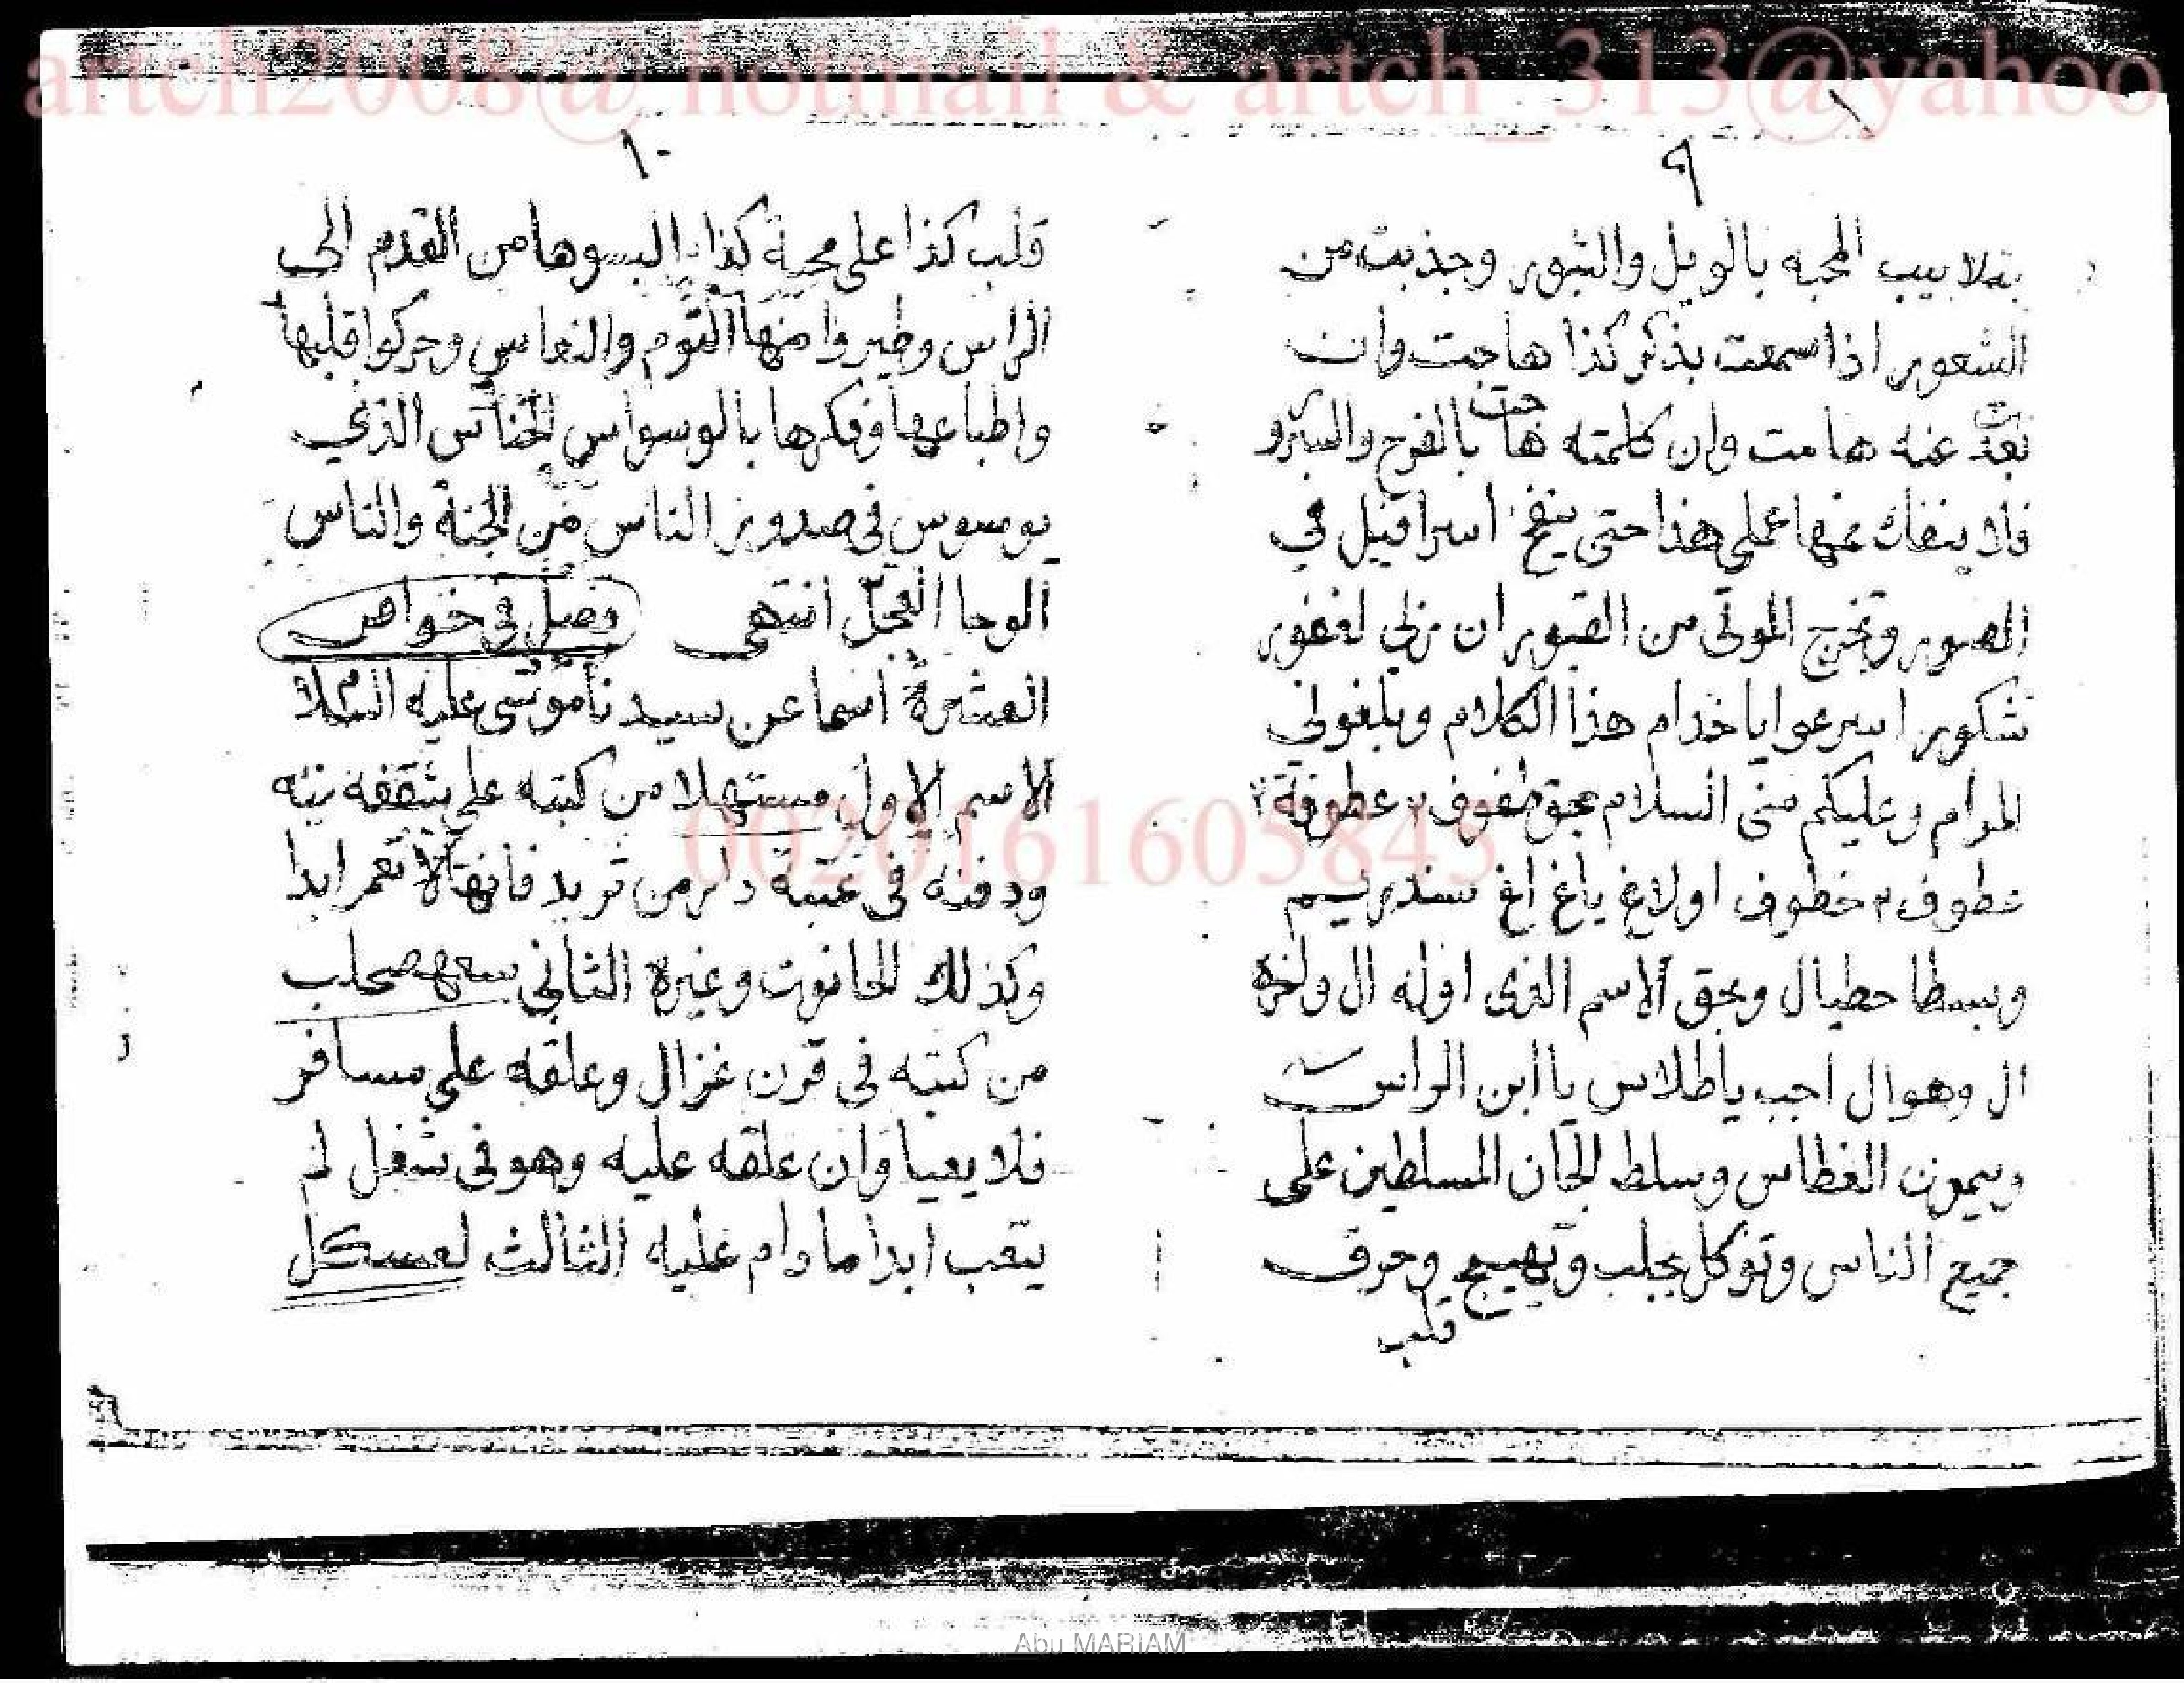 artch2008@ hotmail & artch_313@yahoo
٩
بتلابيب المحبه بالويل والثبور وجذبت من
الشعور اذا سمعت بذكر كذا هاجت وان
بعدت عنه هامت وان كلمته هاجت بالفرح والسرو
فلا ينفك عنها عملي هذا حتى ينفخ اسرافيل في
الصور وتخرج الموتى من القبور ان ربي لغفور
شكور اسرعوا يا خدام هذا الكلام وبلغوني
المرام وعليكم مني السلام بحق طفوف ٢ عطوفة ٢
خطوف ٢ خطوف اولاغ ياغ اغ سندريسم
وبسطا حطيال وبحق الاسم الذى اوله ال واخره
ال وهو ال اجب ياطلاس يا ابن الراس
وسمون الغطاس وسلط الجان المسلطين على
جميع الناس وتوكل بجلب وتهييج وحرق
قلب
١٠
قلب كذا على محبة كذا البسوها من القدم الى
الراس وطيروا منها النوم والنعاس وحركوا قلبها
واطباعها وفكرها بالوسواس الخناس الذي
يوسوس في صدور الناس من الجنة والناس
الوحا العجل انتهى فصل في خواص
العشرة اسما عن سيدنا موسى عليه السلا
الاسم الاول مستهلا من كتبه على شقفة نيه
ودفنه فى عتبة دار من تريد فانها لا تعمر ابدا
وكذلك الحانوت وغيره الثاني سعهصحلب
من كتبه فى قرن غزال وعلقه على مسافر
فلا يعيا وان علقه عليه وهو فى شغل لم
يتعب ابدا ما دام عليه الثالث لعسكل
00201616058​43
Abu MARIAM